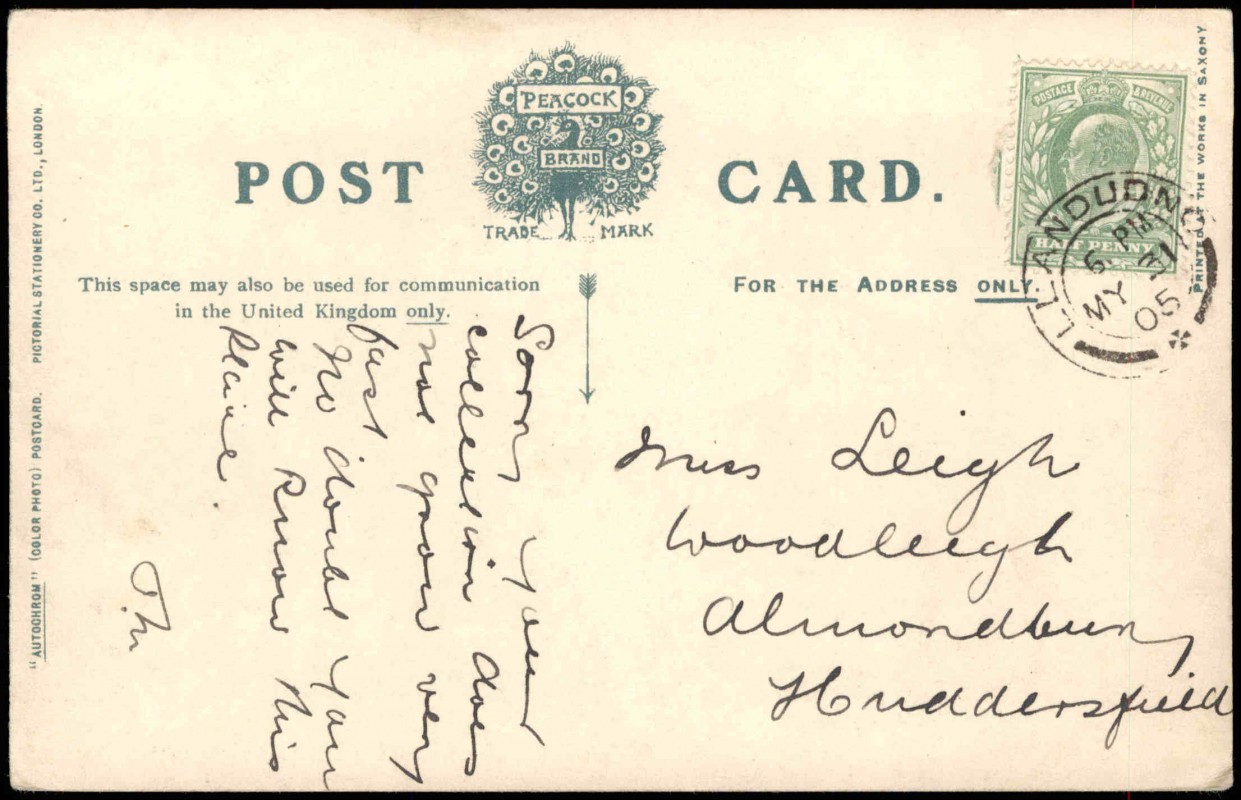 POST CARD.
PEACOCK
BRAND
TRADE MARK
This space may also be used for communication
in the United Kingdom only.
FOR THE ADDRESS ONLY.
POSTAGE & REVENUE
HALF PENNY
LLANDUDNO
5 PM
MY 31
05
PRINTED AT THE WORKS IN SAXONY
"AUTOCHROM" (COLOR PHOTO) POSTCARD. PICTORIAL STATIONERY CO. LTD., LONDON.
Sorry your
collection does
not grow very
fast
No doubt you
will know this
place.
Miss Leigh
Woodleigh
Almondbury
Huddersfield